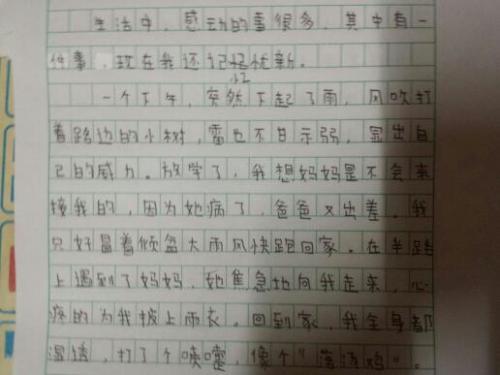 生活中，感动的事很多，其中有一
件事，现在我还记忆犹新。
一个下午，突然下起了雨，风吹打
着路边的小树，雷也不甘示弱，显出自
己的威力。放学了，我想妈妈是不会来
接我的，因为她病了，爸爸又出差。我
只好冒着倾盆大雨风快跑回家。在半路
上遇到了妈妈，她焦急地向我走来，心
疼的为我披上雨衣。回到家，我全身都
湿透，打了个喷嚏，像个“落汤鸡”。